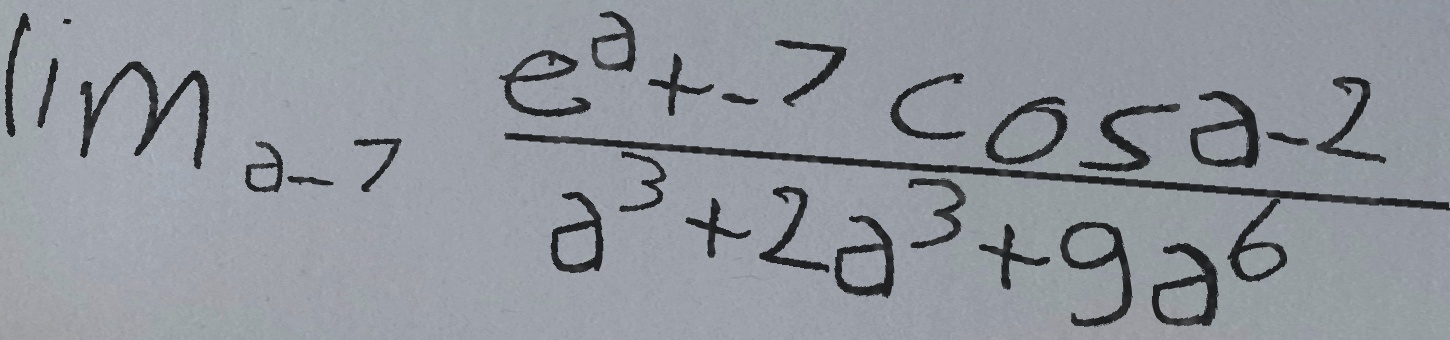 lim_{a-7} \frac{e^a+-7cosa-2}{a^3+2a^3+9a^6}